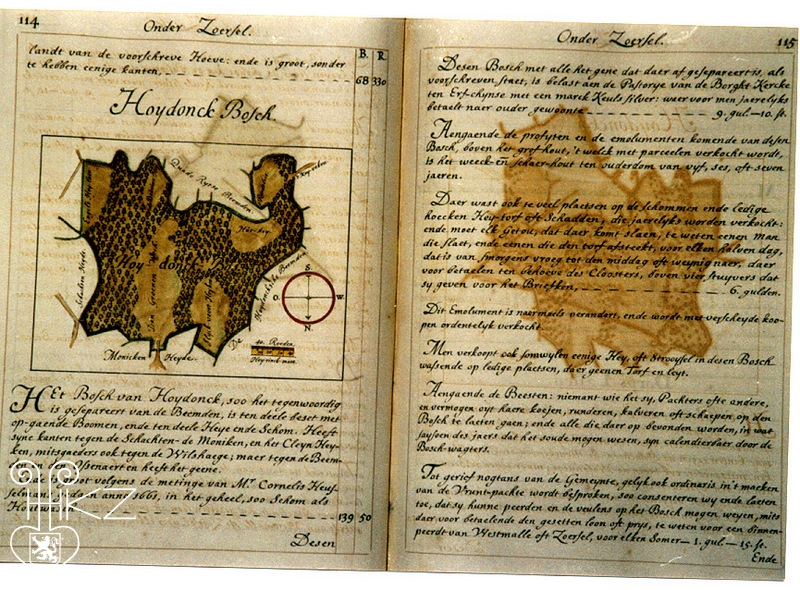 114
Onder Zoersel.
B. R.
landt van de voorschreve Hoeve: ende is groot, sonder
te hebben eenige kanten, 68 330
Hoydonck Bosch.
Quade Rypse Beemden
Hoydonck
Schuttens Heyde
Monicken Heyde.
De Heyninckxse Beemden
S
O. W.
N
40. Roeden
HEt Bosch van Hoydonck, soo het tegenwoordig
is gesepareert van de Beemden, is ten deele beset met
op-gaende Boomen, ende ten deele Heye ende Schom. Heeft
syne kanten tegen de Schachten- de Moniken, en het Cleyn Hey-
ken, mitsgaeders ook tegen de Wilshaege; maer tegen de Beem-
en heeft het geene.
volgens de metinge van Mr. Cornelis Heuf-
selmans, in't geheel, soo Schom als
139 50
Desen
Onder Zoersel.
115
Desen Bosch met alle het gene dat daer af gesepareert is, als
voorschreven staet, is belast aen de Pastorye van de Borght Kercke
ten Erf-chynse met een marck Keuls silver: weer voor men jaerelyks
betaelt naer ouder gewoonte 9. gul.—10. st.
Aengaende de profyten en de emolumenten komende van desen
Bosch, boven het grof-hout, 't welck met parceelen verkocht wordt,
is het weeck en schaer-hout ten ouderdom van vyf, ses, oft seven
jaeren.
Daer wast ook te veel plaetsen op de schommen ende ledige
hoecken Hey-torf oft Schadden, die jaerelyks worden verkocht:
ende moet elk getou, dat daer komt slaen, te weten eenen man
die slaet, ende eenen die den torf afsteekt, voor elken halven dag,
dat is van smorgens vroeg tot den middag oft weynig naer, daer
voor betaelen ten behoeve des Cloosters, boven vier stuyvers dat
sy geven voor het Briefken, 6. gulden.
Dit Emolument is naermaels verandert, ende wordt met verscheyde koo-
pen ordentelyk verkocht.
Men verkoopt ook somwylen eenige Hey, oft Strooysel in desen Bosch
wassende op ledige plaetsen, daer geenen Torf en leyt.
Aengaende de Beesten: niemant wie het sy, Pachters ofte andere,
en vermogen oyt haere koejen, runderen, kalveren oft schaepen op den
Bosch te laeten gaen; ende alle die daer op bevonden worden, in wat
saysoen des jaers dat het soude mogen wesen, syn calendierbaer door de
Bosch-wagters.
Tot gerief nogtans van de Gemeynte, gelyk ook ordinaris in't maeken
van de Vrunt-pachte wordt besproken, soo consenteren wy ende laeten
toe, dat sy hunne peerden en de veulens op het Bosch mogen weyen, mits
daer voor betaelende den gesetten loon oft prys, te weten voor een binnen-
peerdt van Westmalle oft Zoersel, voor elken Somer—1. gul.—15. st.
Ende
KZ